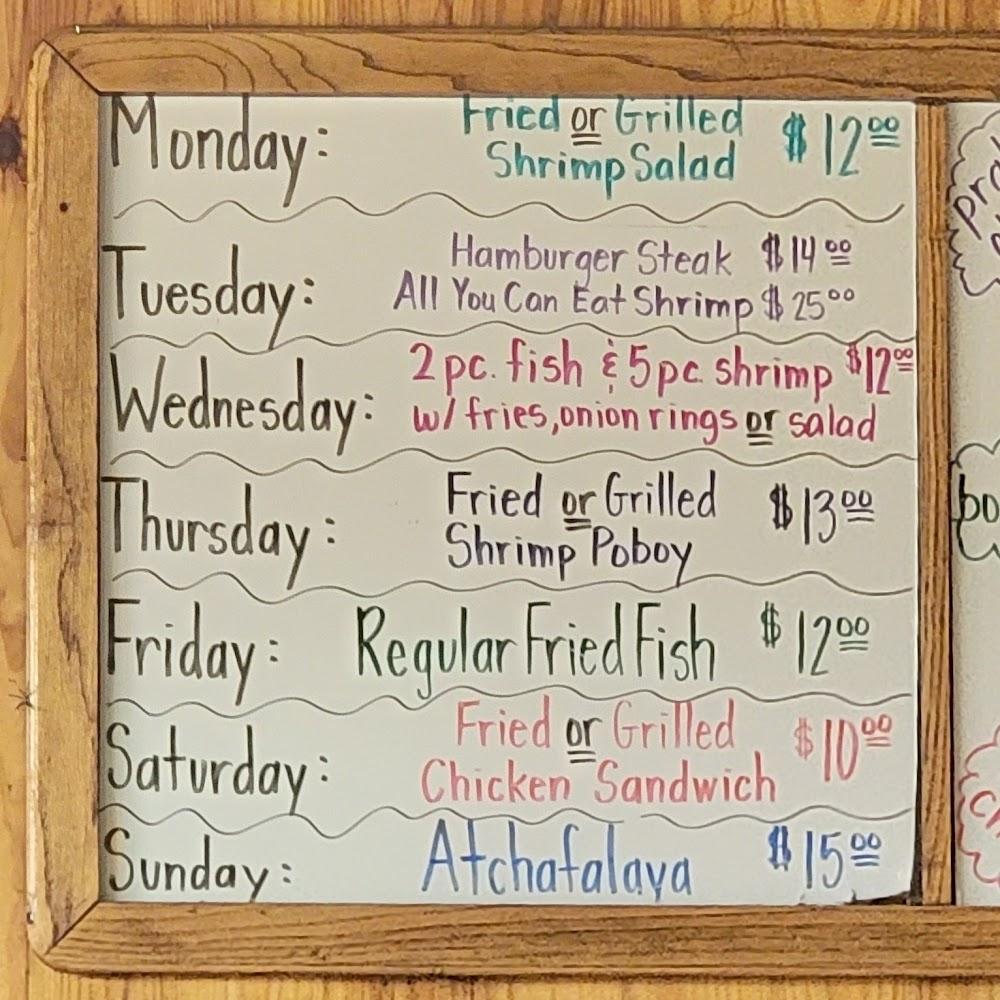 Monday: Fried or Grilled $12.00
Shrimp Salad
Tuesday: Hamburger Steak $14.00
All You Can Eat Shrimp $25.00
Wednesday: 2 pc. fish & 5 pc. shrimp $12.00
w/ fries, onion rings or salad
Thursday: Fried or Grilled $13.00
Shrimp Poboy
Friday: Regular Fried Fish $12.00
Saturday: Fried or Grilled $10.00
Chicken Sandwich
Sunday: Atchafalaya $15.00